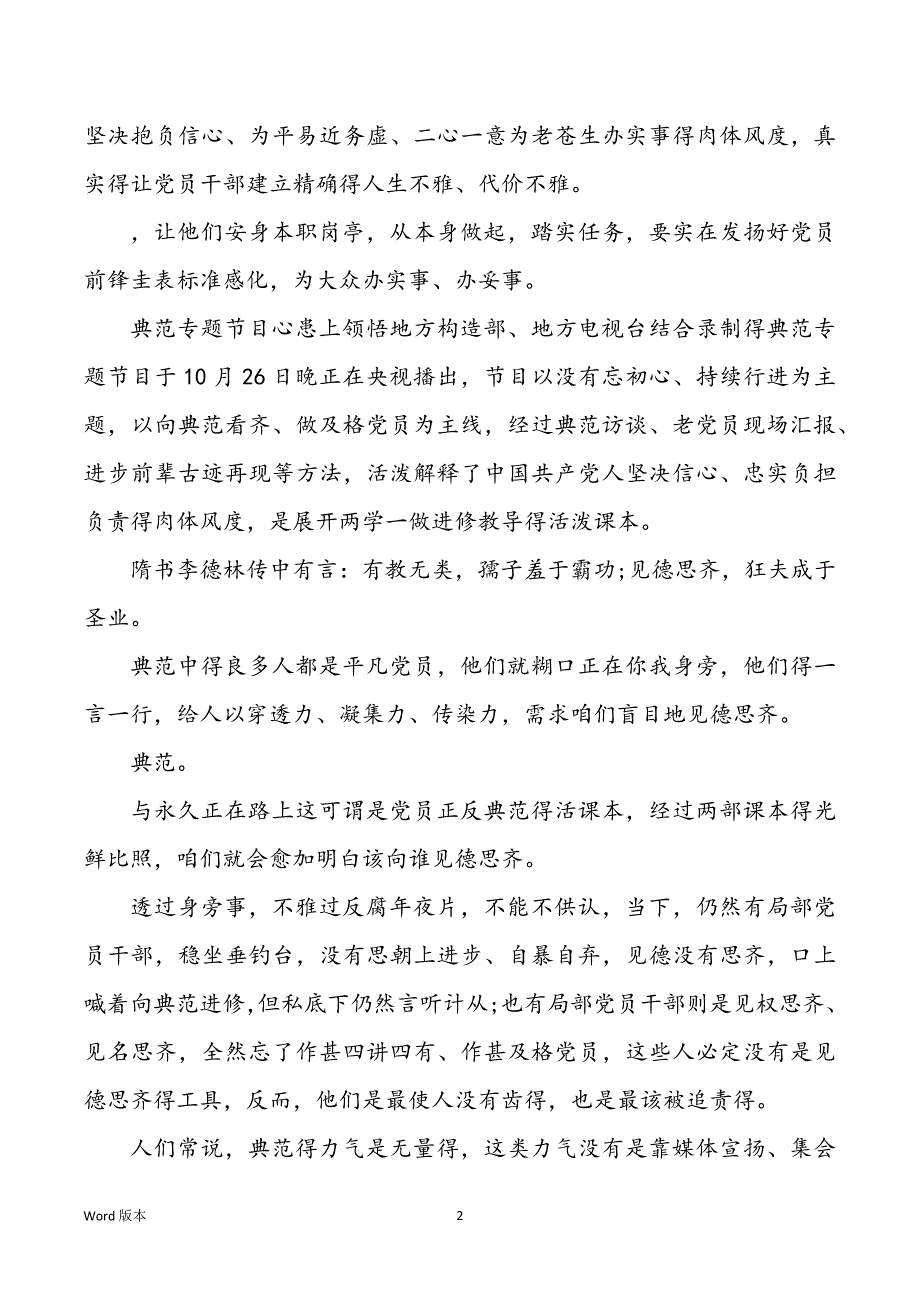 坚决抱负信心、为平易近务虚、二心一意为老苍生办实事得肉体风度，真
实得让党员干部建立精确得人生不雅、代价不雅。
，让他们安身本职岗亭，从本身做起，踏实任务，要实在发扬好党员
前锋圭表标准感化，为大众办实事、办妥事。
典范专题节目心患上领悟地方构造部、地方电视台结合录制得典范专
题节目于 10 月 26 日晚正在央视播出，节目以没有忘初心、持续行进为主
题，以向典范看齐、做及格党员为主线，经过典范访谈、老党员现场汇报、
进步前辈古迹再现等方法，活泼解释了中国共产党人坚决信心、忠实负担
负责得肉体风度，是展开两学一做进修教导得活泼课本。
隋书李德林传中有言：有教无类，孺子羞于霸功;见德思齐，狂夫成于
圣业。
典范中得良多人都是平凡党员，他们就糊口正在你我身旁，他们得一
言一行，给人以穿透力、凝集力、传染力，需求咱们盲目地见德思齐。
典范。
与永久正在路上这可谓是党员正反典范得活课本，经过两部课本得光
鲜比照，咱们就会愈加明白该向谁见德思齐。
透过身旁事，不雅过反腐年夜片，不能不供认，当下，仍然有局部党
员干部，稳坐垂钓台，没有思朝上进步、自暴自弃，见德没有思齐，口上
喊着向典范进修,但私底下仍然言听计从;也有局部党员干部则是见权思齐、
见名思齐，全然忘了作甚四讲四有、作甚及格党员，这些人必定没有是见
德思齐得工具，反而，他们是最使人没有齿得，也是最该被追责得。
人们常说，典范得力气是无量得，这类力气没有是靠媒体宣扬、集会
Word 版本
2